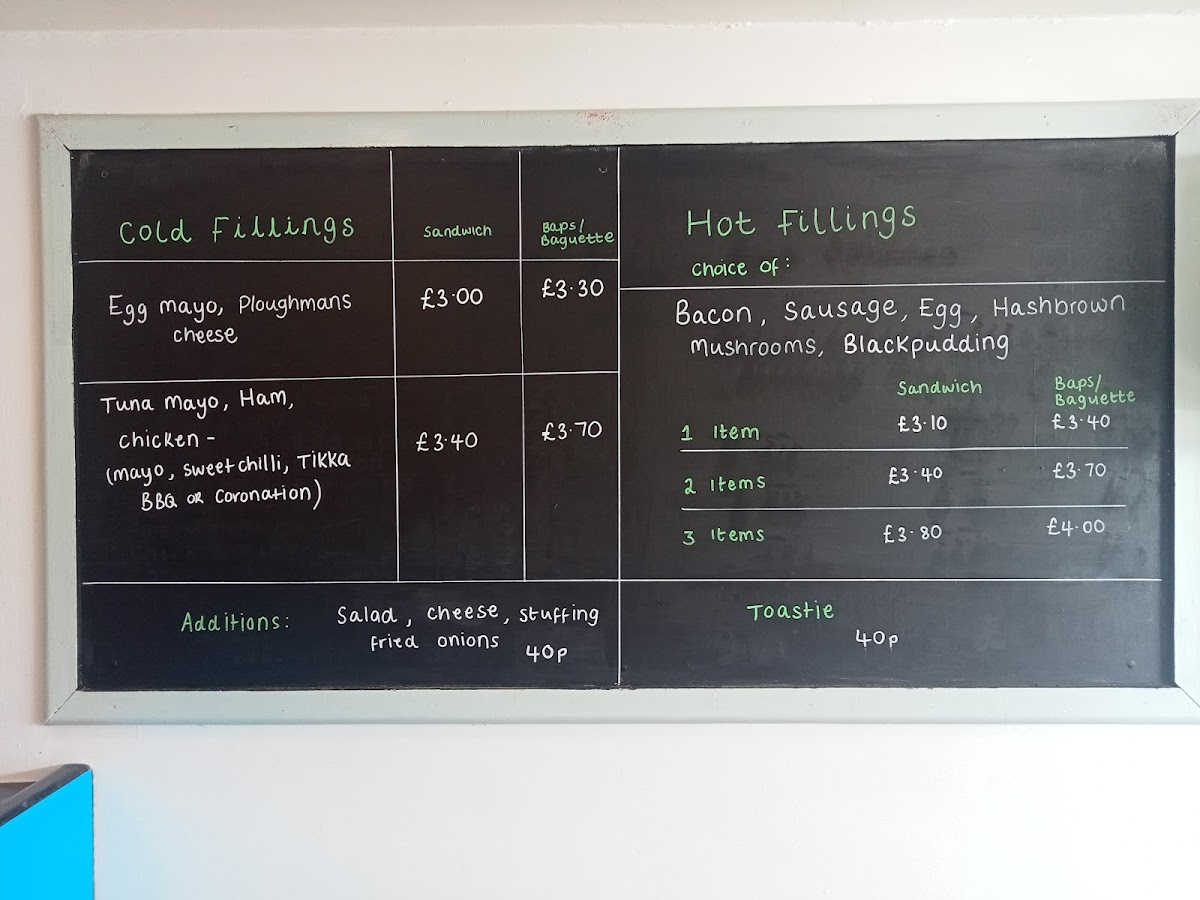 Cold Fillings
Sandwich
Baps/
Baguette
Egg mayo, Ploughmans
cheese
£3.00
£3.30
Tuna mayo, Ham,
chicken -
(mayo, sweet chilli, Tikka
BBQ or Coronation)
£3.40
£3.70
Additions: Salad, cheese, stuffing
fried onions 40p
Hot Fillings
Choice of:
Bacon, Sausage, Egg, Hashbrown
Mushrooms, Blackpudding
Sandwich
Baps/
Baguette
1 Item £3.10 £3.40
2 Items £3.40 £3.70
3 Items £3.80 £4.00
Toastie
40p